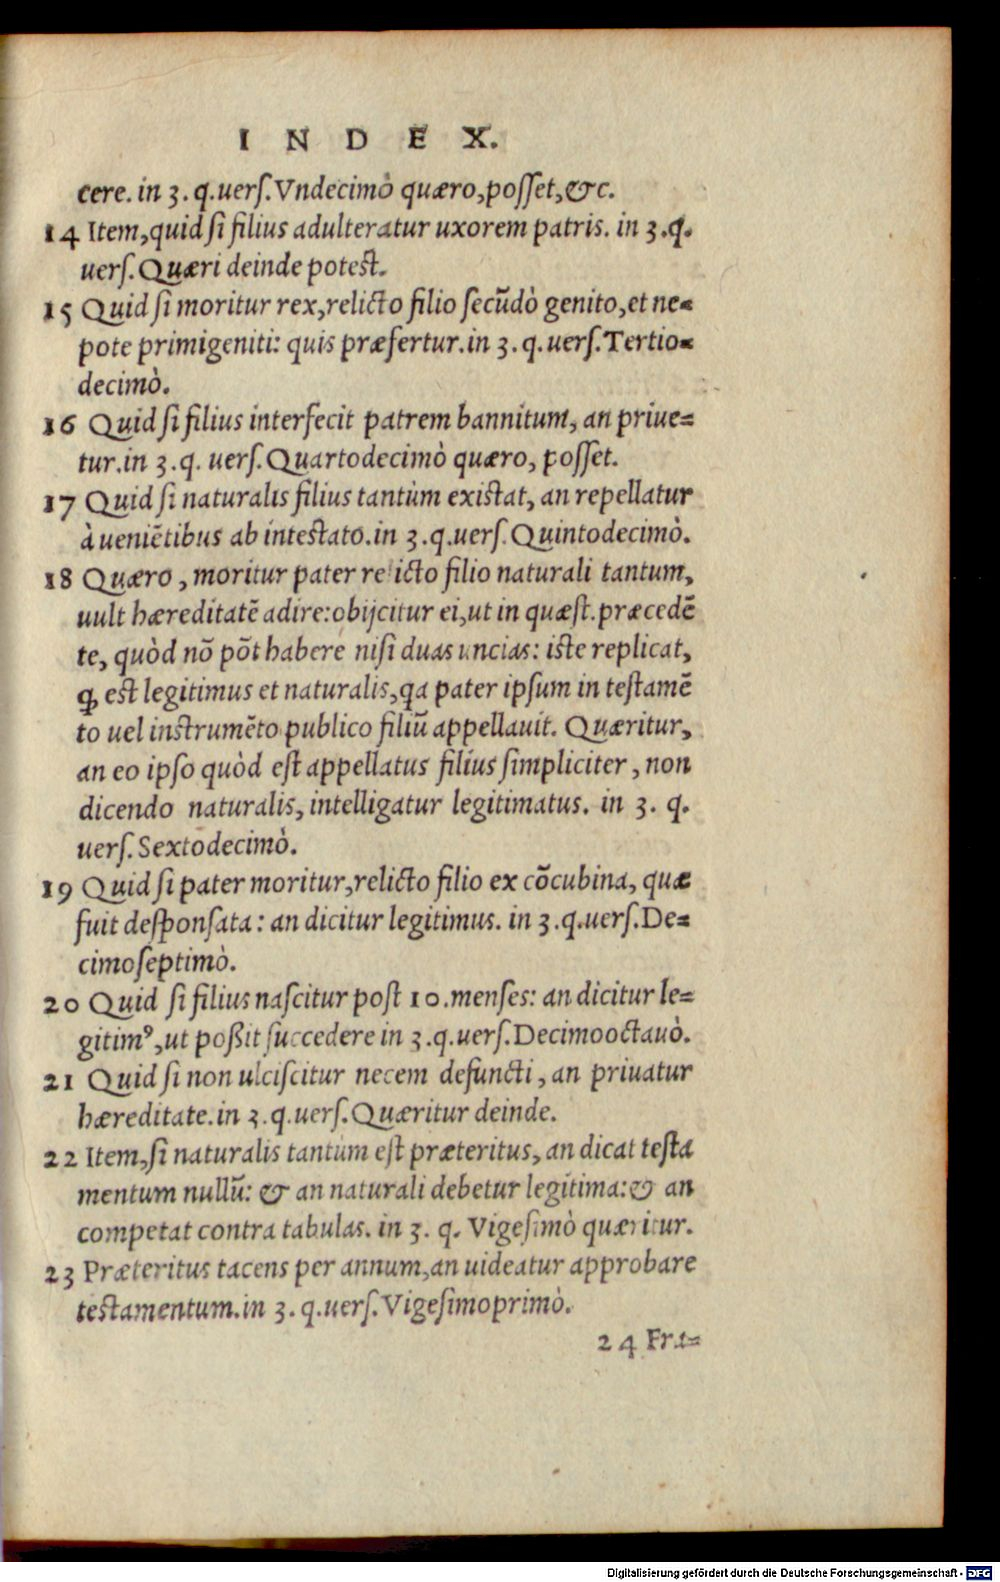 INDEX.
cere. in 3. q. uerſ. Vndecimò quæro, poſſet, &c.
14 Item, quid ſi filius adulteratur uxorem patris. in 3. q.
uerſ. Quæri deinde poteſt.
15 Quid ſi moritur rex, relicto filio ſecũdò genito, et ne=
pote primigeniti: quis præfertur. in 3. q. uerſ. Tertio=
decimò.
16 Quid ſi filius interfecit patrem bannitum, an priue=
tur. in 3. q. uerſ. Quartodecimò quæro, poſſet.
17 Quid ſi naturalis filius tantùm exiſtat, an repellatur
à ueniẽtibus ab inteſtato. in 3. q. uerſ. Quintodecimò.
18 Quæro, moritur pater relicto filio naturali tantum,
uult hæreditatẽ adire: obijcitur ei, ut in quæſt. præcedẽ
te, quòd nõ põt habere niſi duas uncias: iſte replicat,
ꝙ eſt legitimus et naturalis, qa pater ipſum in teſtamẽ
to uel inſtrumẽto publico filiũ appellauit. Quæritur,
an eo ipſo quòd eſt appellatus filius ſimpliciter, non
dicendo naturalis, intelligatur legitimatus. in 3. q.
uerſ. Sextodecimò.
19 Quid ſi pater moritur, relicto filio ex cõcubina, quæ
fuit deſponſata: an dicitur legitimus. in 3. q. uerſ. De=
cimoſeptimò.
20 Quid ſi filius naſcitur poſt 10. menſes: an dicitur le=
gitimꝰ, ut poßit ſuccedere in 3. q. uerſ. Decimooctauò.
21 Quid ſi non ulciſcitur necem defuncti, an priuatur
hæreditate. in 3. q. uerſ. Quæritur deinde.
22 Item, ſi naturalis tantùm eſt præteritus, an dicat teſta
mentum nullũ: & an naturali debetur legitima: & an
competat contra tabulas. in 3. q. Vigeſimò quæritur.
23 Præteritus tacens per annum, an uideatur approbare
teſtamentum. in 3. q. uerſ. Vigeſimoprimò.
24 Fra=
Digitalisierung gefördert durch die Deutsche Forschungsgemeinschaft - DFG